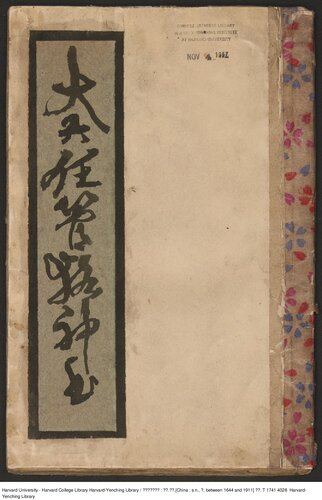 大六任管輅神书
CHINESE-JAPANESE LIBRARY
HARVARD-YENCHING INSTITUTE
AT HARVARD UNIVERSITY
NOV
Harvard University - Harvard College Library Harvard-Yenching Library / ??????? : ??. ?? [China : s.n., ?, between 1644 and 1911] ??. T 1741 4028 Harvard-
Yenching Library